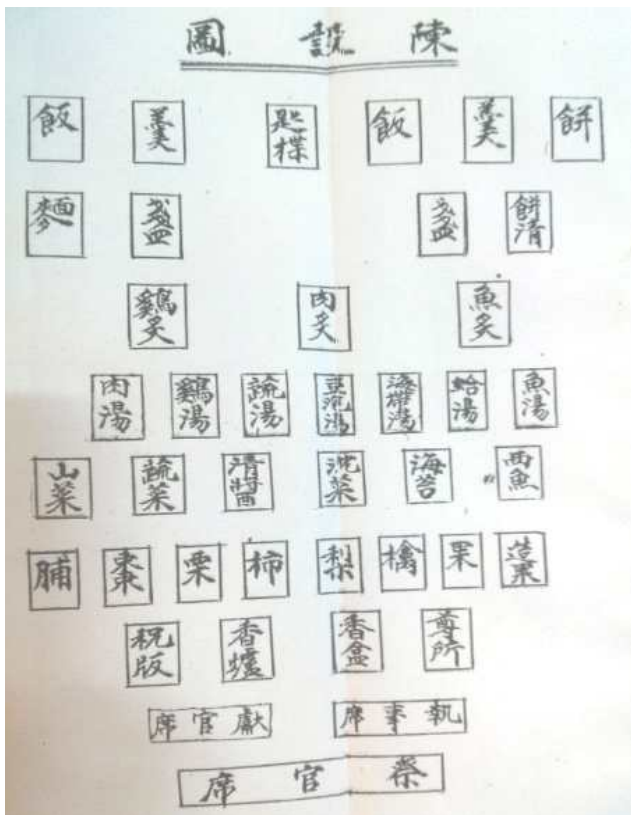 陳設圖
飯 羹 匙楪 飯 羹 餠
麵 盞 盞 餠淸
鷄炙 肉炙 魚炙
肉湯 鷄湯 蔬湯 湯 湯 蛤湯 魚湯
山菜 蔬菜 淸醬 沈菜 海苔 魚
脯 棗 栗 柿 梨 檎 果 造菓
祝版 香爐 香盒 尊所
獻官席 執事席
祭官席